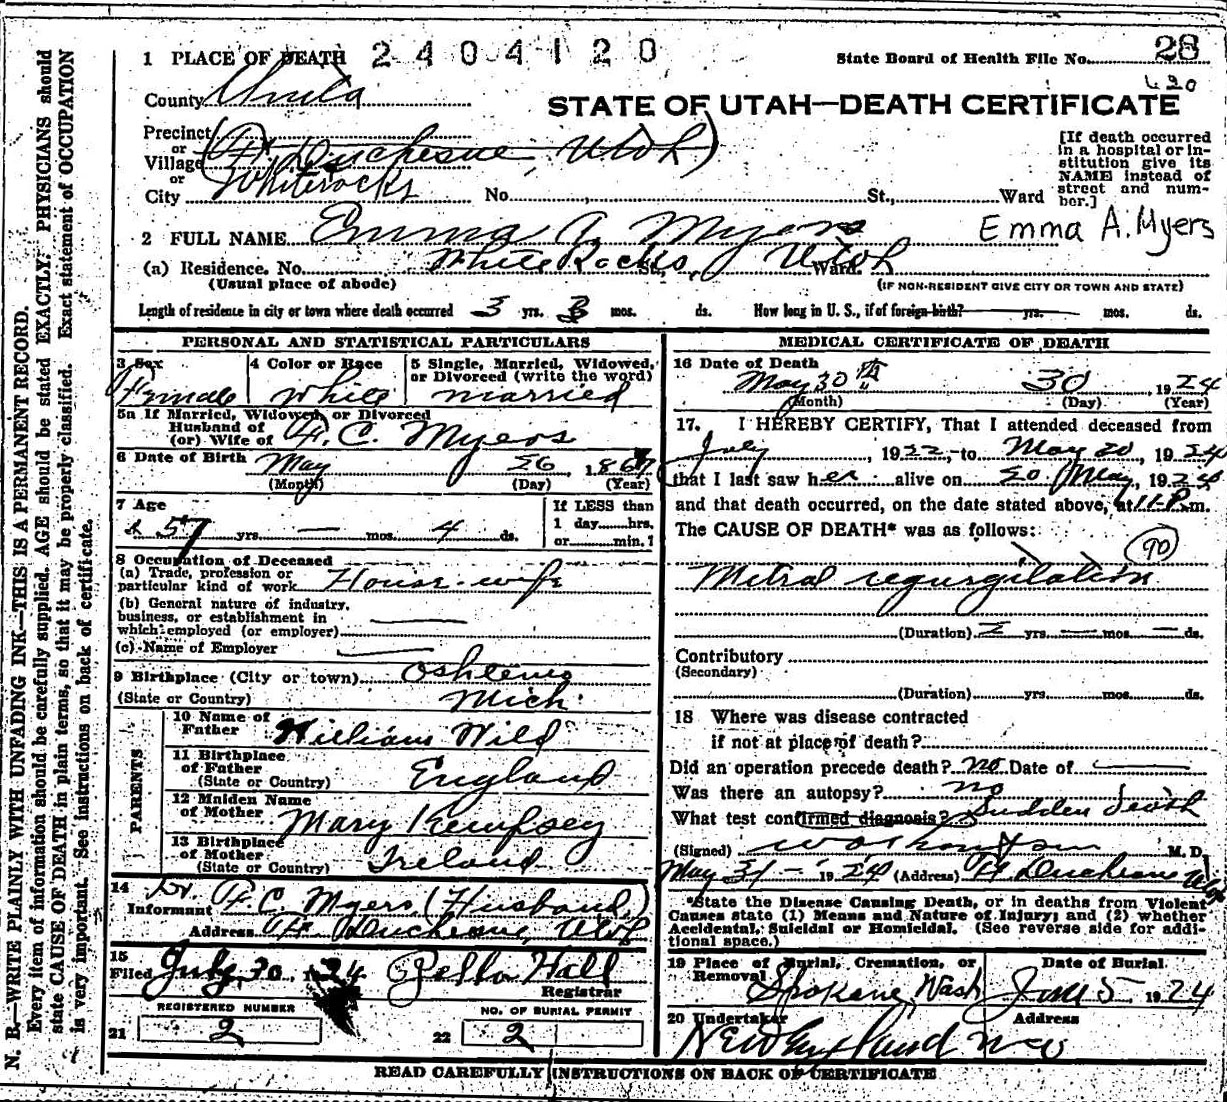 1 PLACE OF DEATH 2404120 State Board of Health File No. 28
County Uinta 420
STATE OF UTAH—DEATH CERTIFICATE
Precinct
or
Village (Ft Duchesne, Utah)
or
City Whiterocks No. St., Ward
[If death occurred
in a hospital or in-
stitution give its
NAME instead of
street and num-
ber.]
2 FULL NAME Emma A. Myers Emma A. Myers
(a) Residence. No. White Rocks St., Ward. Utah
(Usual place of abode) (IF NON-RESIDENT GIVE CITY OR TOWN AND STATE)
Length of residence in city or town where death occurred 3 yrs. 3 mos. ds. How long in U. S., if of foreign birth? yrs. mos. ds.
PERSONAL AND STATISTICAL PARTICULARS
3 Sex 4 Color or Race 5 Single, Married, Widowed,
or Divorced (write the word)
Female white married
5a If Married, Widowed, or Divorced
Husband of
(or) Wife of F. C. Myers
6 Date of Birth May 26 1867
(Month) (Day) (Year)
7 Age If LESS than
57 yrs — mos. 4 ds. 1 day hrs.
or min.?
8 Occupation of Deceased
(a) Trade, profession or
particular kind of work House-wife
(b) General nature of industry,
business, or establishment in
which employed (or employer)
(c) Name of Employer
9 Birthplace (City or town) Oshtemo
(State or Country) Mich.
PARENTS
10 Name of
Father William Wild
11 Birthplace
of Father England
(State or Country)
12 Maiden Name
of Mother Mary Kempsey
13 Birthplace
of Mother Ireland
(State or Country)
14 Dr. F. C. Myers (Husband)
Informant
Address Ft Duchesne, Utah
15
Filed July 30, 1924 Zella Hall
Registrar
REGISTERED NUMBER NO. OF BURIAL PERMIT
21 2 22 2
MEDICAL CERTIFICATE OF DEATH
16 Date of Death
May 30th 30 1924
(Month) (Day) (Year)
17. I HEREBY CERTIFY, That I attended deceased from
July, 1922, to May 20, 1924
that I last saw her alive on 20 May, 1924
and that death occurred, on the date stated above, at 11 P.m.
The CAUSE OF DEATH* was as follows:
90
Mitral regurgitation
(Duration) 2 yrs. — mos. — ds.
Contributory
(Secondary)
(Duration) yrs. mos. ds.
18 Where was disease contracted
if not at place of death?
Did an operation precede death? no Date of
Was there an autopsy? no
What test confirmed diagnosis? Sudden death
(Signed) M. D.
May 31 - 1924 (Address) Ft Duchesne Utah
*State the Disease Causing Death, or in deaths from Violent
Causes state (1) Means and Nature of Injury; and (2) whether
Accidental, Suicidal or Homicidal. (See reverse side for addi-
tional space.)
19 Place of Burial, Cremation, or Date of Burial
Removal
Spokane, Wash June 5 1924
20 Undertaker Address
READ CAREFULLY INSTRUCTIONS ON BACK OF CERTIFICATE
N. B.—WRITE PLAINLY WITH UNFADING INK—THIS IS A PERMANENT RECORD.
Every item of information should be carefully supplied. AGE should be stated EXACTLY. PHYSICIANS should
state CAUSE OF DEATH in plain terms, so that it may be properly classified. Exact statement of OCCUPATION
is very important. See instructions on back of certificate.